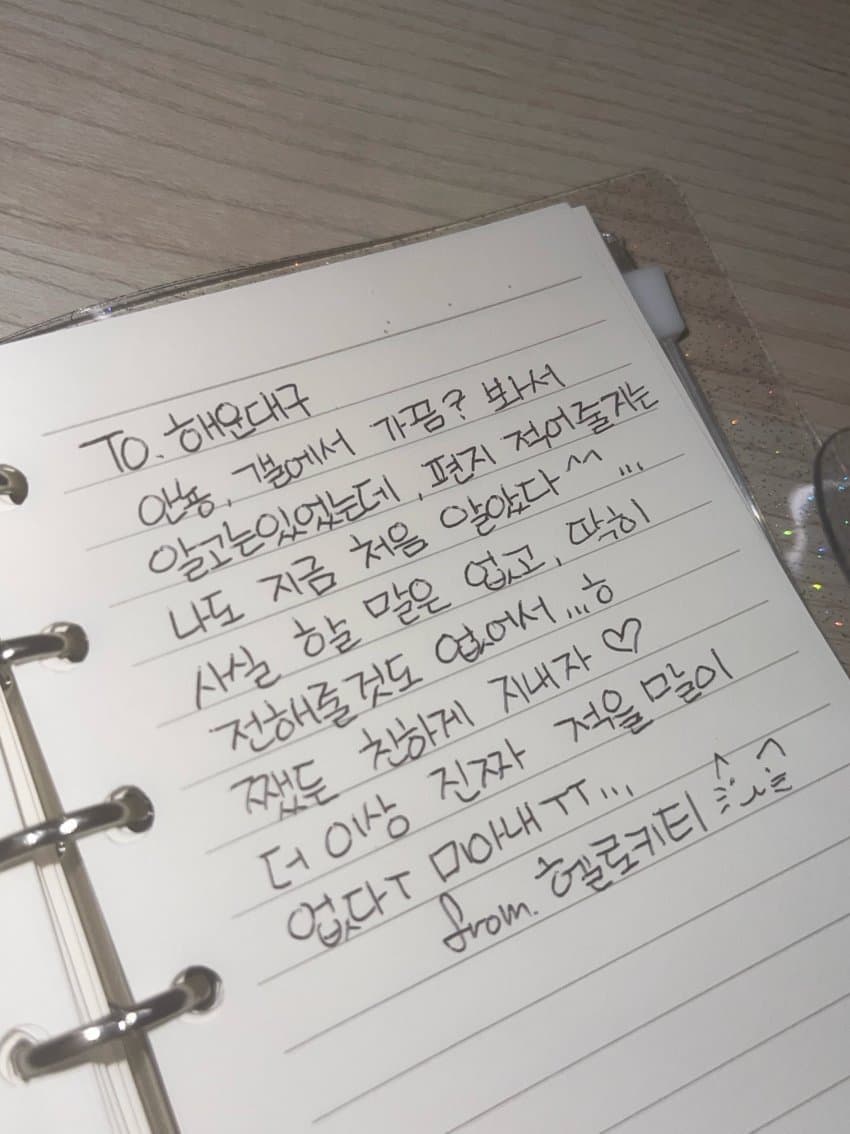 To. 해운대구
안뇽, 갤에서 가끔? 봐서
알고는있었는데, 편지 적어줄지는
나도 지금 처음 알았다^^ ...
사실 할 말은 없고, 딱히
전해줄것도 없어서...ㅎ
쨌든 친하게 지내자 ♡
더 이상 진짜 적을 말이
없다ㅜ 미아내ㅜㅜ...
from. 헬로키티